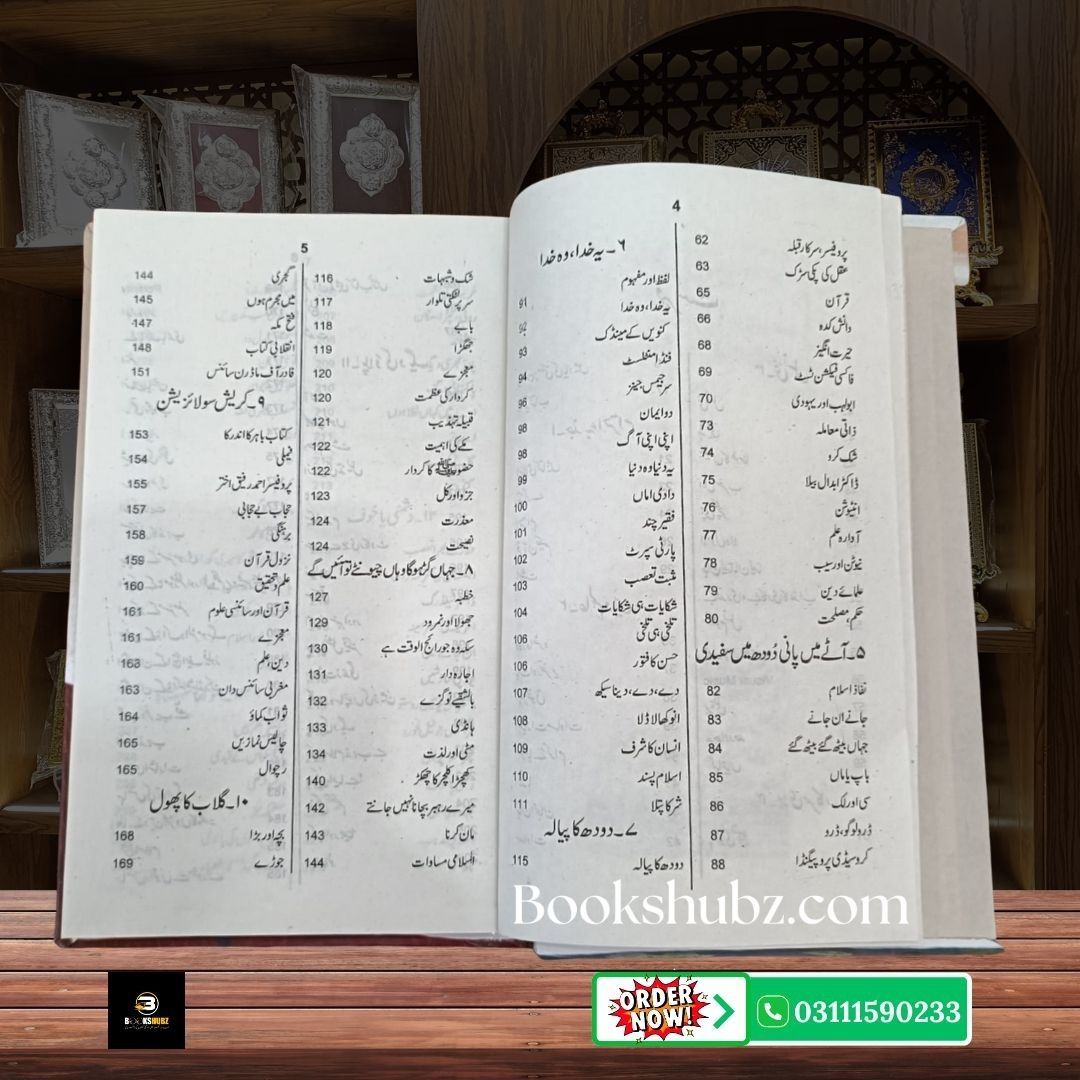 4
پروفیسر، سرکار قبلہ 62
عقل کی پکی سڑک 63
قرآن 65
دانش کدہ 66
حیرت انگیز 68
فاکسی فیکشن ٹسٹ 69
ابولہب اور یہودی 70
ذاتی معاملہ 73
شک کرو 74
ڈاکٹر ابدال بیلا 75
انٹیوشن 76
آوارہ علم 77
نیوٹن اور سیب 78
علمائے دین 79
حکم، مصلحت 80
۵۔ آٹے میں پانی دُودھ میں سفیدی
نفاذ اسلام 82
جانے ان جانے 83
جہاں بیٹھ گئے بیٹھ گئے 84
باپ یا ماں 85
سی اور لک 86
ڈرو لوگو، ڈرو 87
کروسیڈی پروپیگنڈا 88
۶۔ یہ خدا، وہ خدا
لفظ اور مفہوم
یہ خدا، وہ خدا 91
کنویں کے مینڈک 92
فنڈامنٹلسٹ 93
سر جیمس جینز 94
دو ایمان 96
اپنی اپنی آگ 98
یہ دنیا وہ دنیا 98
دادی اماں 99
فقیر چند 100
پارٹی سپرٹ 101
مثبت تعصب 102
شکایات ہی شکایات 103
تلخی ہی تلخی 104
حسن کا فتور 106
دے، دے، دینا سیکھ 106
انوکھا لاڈلا 107
انسان کا شرف 108
اسلام پسند 109
شر کا پتلا 110
111
۷۔ دودھ کا پیالہ
دودھ کا پیالہ 115
5
شک و شبہات 116
سر پر لٹکتی تلوار 117
بابے 118
جھگڑا 119
معجزے 120
کردار کی عظمت 120
قبیلہ تہذیب 121
مکے کی اہمیت 122
حضور ﷺ کا کردار 122
جزو اور کل 123
معذرت 124
نصیحت 124
۸۔ جہاں گڑ ہوگا وہاں چیونٹے تو آئیں گے
خطبہ 127
جھولا اور نمرود 129
سکہ وہ جو رائج الوقت ہے 130
اجارہ دار 131
بالشتیے نو گزے 132
ہانڈی 133
مٹی اور لذت 134
کھچڑا کلچر کا چھکڑ 140
میرے رہبر بجانا نہیں جانتے 142
مان کرنا 143
اسلامی مساوات 144
گجری 144
میں مجرم ہوں 145
فتح مکہ 147
انقلابی کتاب 148
فادر آف ماڈرن سائنس 151
۹۔ کریش سولائزیشن
کتاب باہر کا اندر کا 153
فیملی 154
پروفیسر احمد رفیق اختر 155
حجاب بے حجابی 157
برہنگی 158
نزول قرآن 159
علم و تحقیق 160
قرآن اور سائنسی علوم 161
معجزے 161
دین، علم 163
مغربی سائنس دان 163
ثواب کماؤ 164
چالیس نمازیں 165
رچوال 165
۱۰۔ گلاب کا پھول
بچہ اور بڑا 168
جوڑے 169
Bookshubz.com
BOOKSHUBZ
ORDER NOW!
03111590233